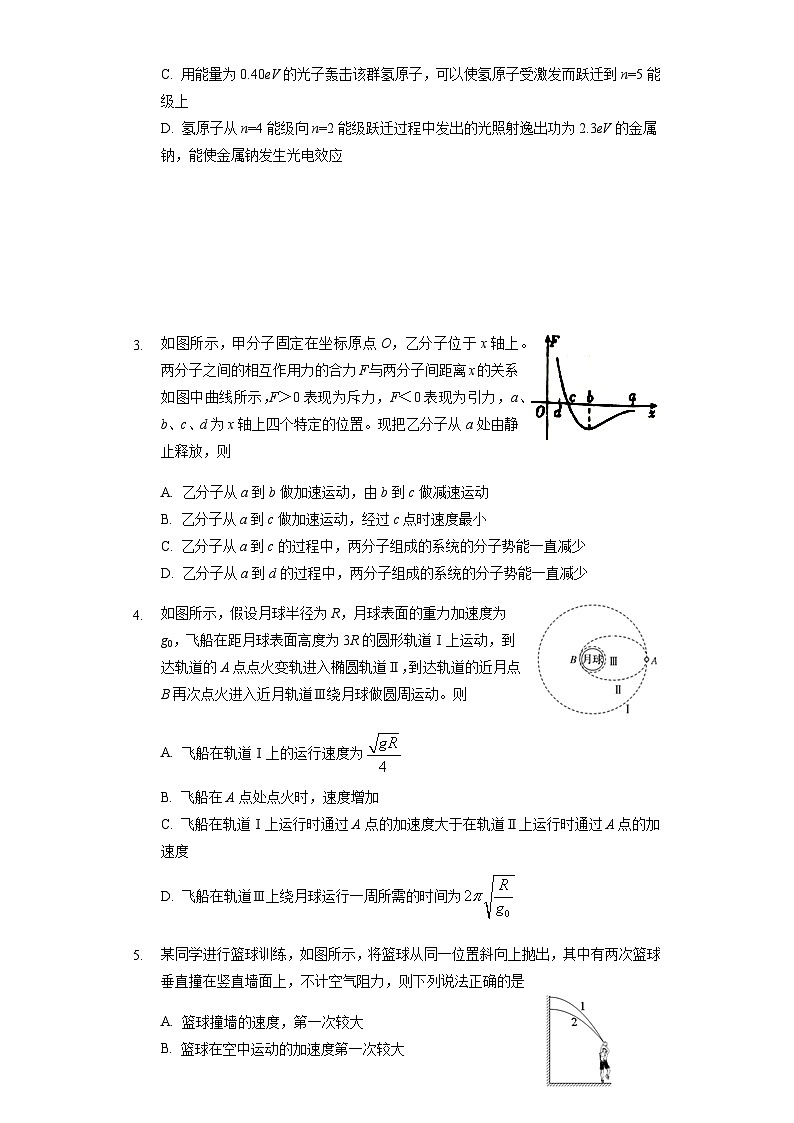 C. 用能量为 0.40eV 的光子轰击该群氢原子，可以使氢原子受激发而跃迁到 n=5 能
级上
D. 氢原子从 n=4 能级向 n=2 能级跃迁过程中发出的光照射逸出功为 2.3eV 的金属
钠，能使金属钠发生光电效应
3. 如图所示，甲分子固定在坐标原点 O，乙分子位于 x 轴上。
两分子之间的相互作用力的合力 F 与两分子间距离 x 的关系
如图中曲线所示，F＞0 表现为斥力，F＜0 表现为引力，a、
b、c、d 为 x 轴上四个特定的位置。现把乙分子从 a 处由静
止释放，则
F
O d c b a x
A. 乙分子从 a 到 b 做加速运动，由 b 到 c 做减速运动
B. 乙分子从 a 到 c 做加速运动，经过 c 点时速度最小
C. 乙分子从 a 到 c 的过程中，两分子组成的系统的分子势能一直减少
D. 乙分子从 a 到 d 的过程中，两分子组成的系统的分子势能一直减少
4. 如图所示，假设月球半径为 R，月球表面的重力加速度为
g₀，飞船在距月球表面高度为 3R 的圆形轨道Ⅰ上运动，到
达轨道的 A 点点火变轨进入椭圆轨道Ⅱ，到达轨道的近月点
B 再次点火进入近月轨道Ⅲ绕月球做圆周运动。则
B 月球 Ⅲ A
Ⅱ
Ⅰ
A. 飞船在轨道Ⅰ上的运行速度为 √(gR)/4
B. 飞船在 A 点处点火时，速度增加
C. 飞船在轨道Ⅰ上运行时通过 A 点的加速度大于在轨道Ⅱ上运行时通过 A 点的加
速度
D. 飞船在轨道Ⅲ上绕月球运行一周所需的时间为 2π√(R/g₀)
5. 某同学进行篮球训练，如图所示，将篮球从同一位置斜向上抛出，其中有两次篮球
垂直撞在竖直墙面上，不计空气阻力，则下列说法正确的是
A. 篮球撞墙的速度，第一次较大
B. 篮球在空中运动的加速度第一次较大
1
2